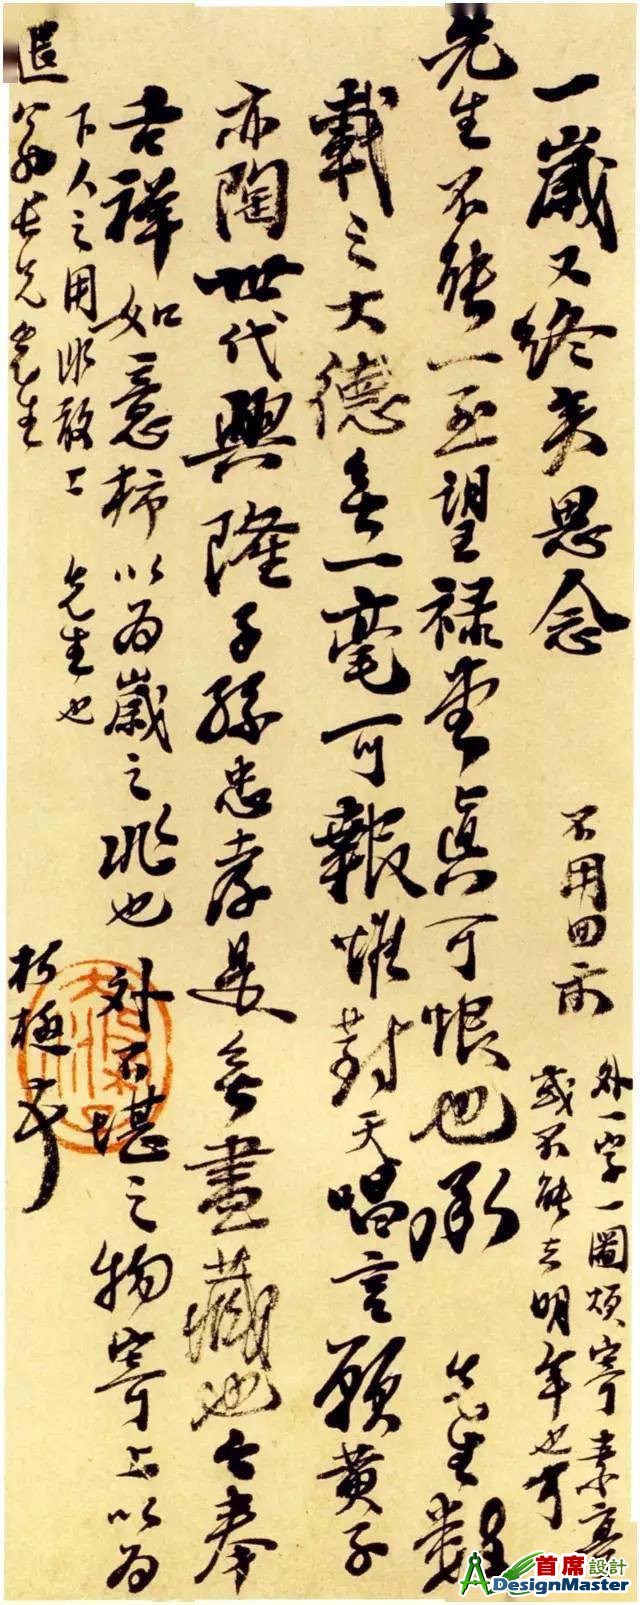 一歲又終矣思念
不用回示
外一字一圖煩寄素亭
或不能去明年也可
先生不能一至望祿堂眞可恨也承 先生數
載之大德無一毫可報惟對天唱言願黃子
亦陶世代興隆子孫忠孝是無盡藏也今奉
吉祥如意柿以為歲之兆也外不堪之物寄上以為
下人之用非敢上 先生也
退翁長兄先生
朽極
首席設計
DesignMaster